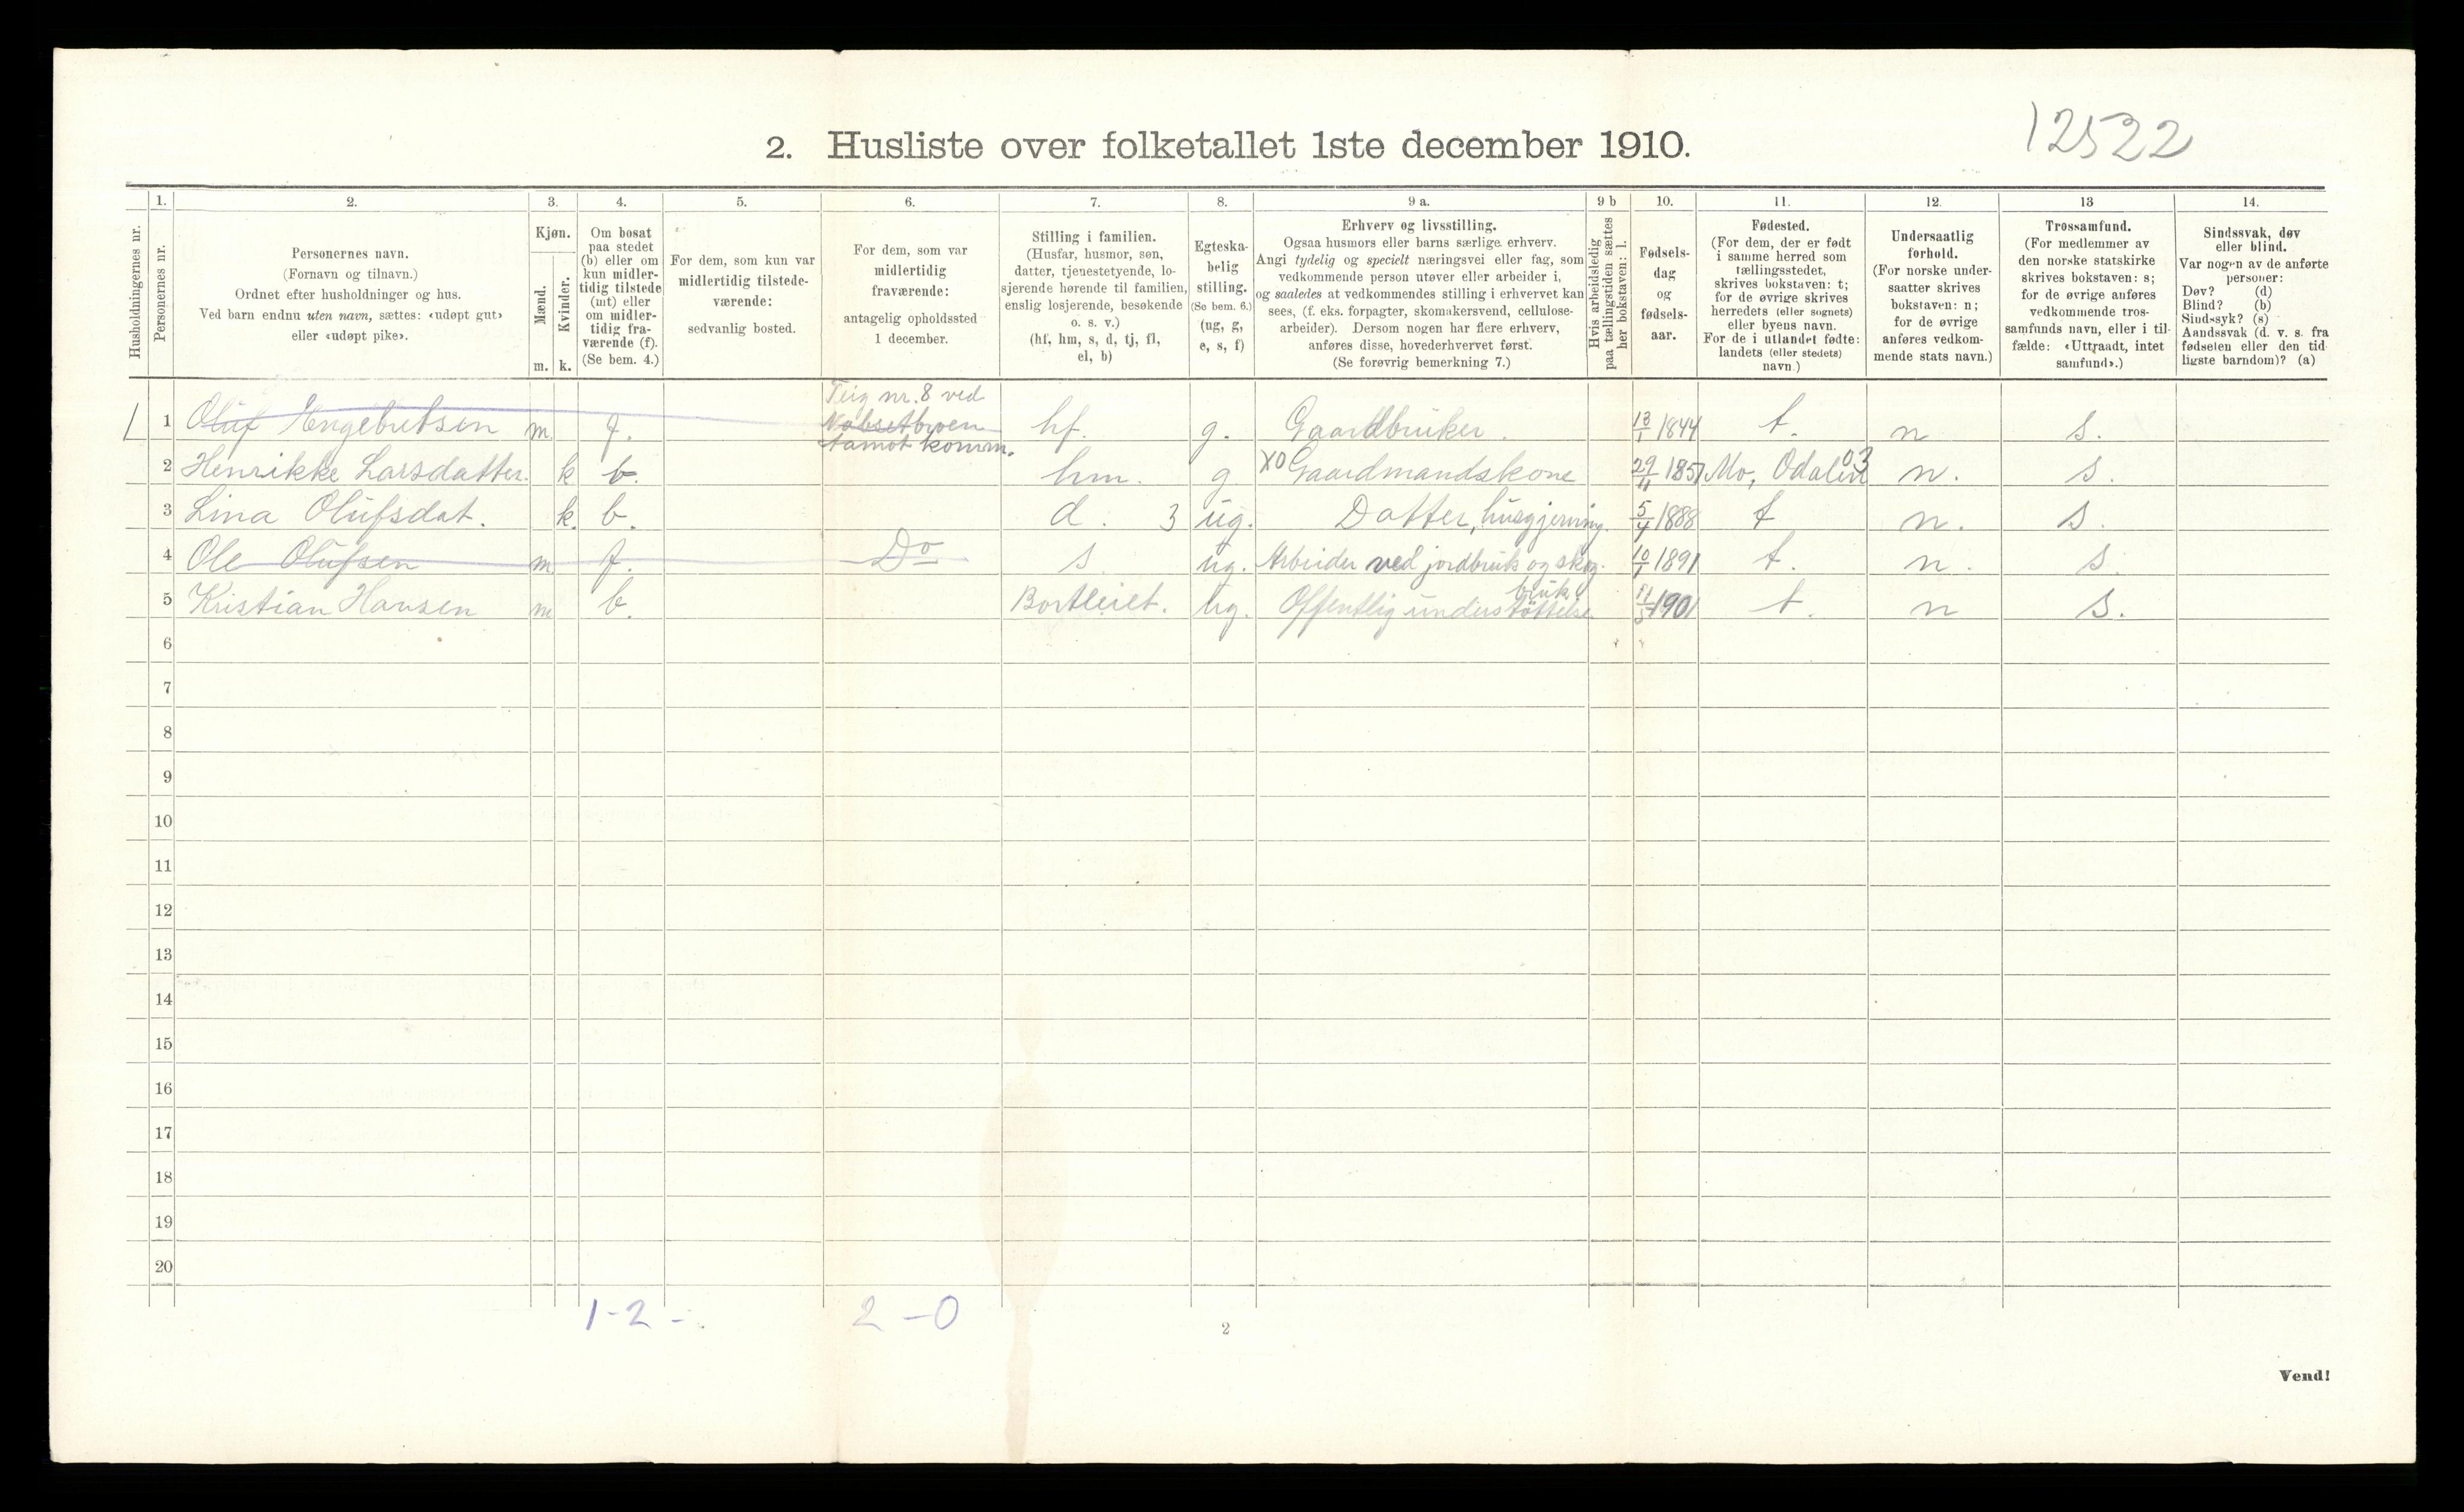 12522
2. Husliste over folketallet 1ste december 1910.
Husholdningernes nr.
1.
Personernes nr.
2.
Personernes navn.
(Fornavn og tilnavn.)
Ordnet efter husholdninger og hus.
Ved barn endnu uten navn, sættes: «udøpt gut»
eller «udøpt pike».
3.
Kjøn.
Mænd.
Kvinder.
m. k.
4.
Om bosat
paa stedet
(b) eller om
kun midler-
tidig tilstede
(mt) eller
om midler-
tidig fra-
værende (f).
(Se bem. 4.)
5.
For dem, som kun var
midlertidig tilstede-
værende:
sedvanlig bosted.
6.
For dem, som var
midlertidig
fraværende:
antagelig opholdssted
1 december.
7.
Stilling i familien.
(Husfar, husmor, søn,
datter, tjenestetyende, lo-
sjerende hørende til familien,
enslig losjerende, besøkende
o. s. v.)
(hf, hm, s, d, tj, fl,
el, b)
8.
Egteska-
belig
stilling.
(Se bem. 6.)
(ug, g,
e, s, f)
9 a.
Erhverv og livsstilling.
Ogsaa husmors eller barns særlige erhverv.
Angi tydelig og specielt næringsvei eller fag, som
vedkommende person utøver eller arbeider i,
og saaledes at vedkommendes stilling i erhvervet kan
sees, (f. eks. forpagter, skomakersvend, cellulose-
arbeider). Dersom nogen har flere erhverv,
anføres disse, hovederhvervet først.
(Se forøvrig bemerkning 7.)
9 b
Hvis arbeidsledig
paa tællingstiden sættes
her bokstaven: l.
10.
Fødsels-
dag
og
fødsels-
aar.
11.
Fødested.
(For dem, der er født
i samme herred som
tællingsstedet,
skrives bokstaven: t;
for de øvrige skrives
herredets (eller sognets)
eller byens navn.
For de i utlandet fødte:
landets (eller stedets)
navn.)
12.
Undersaatlig
forhold.
(For norske under-
saatter skrives
bokstaven: n;
for de øvrige
anføres vedkom-
mende stats navn.)
13
Trossamfund.
(For medlemmer av
den norske statskirke
skrives bokstaven: s;
for de øvrige anføres
vedkommende tros-
samfunds navn, eller i til-
fælde: «Uttraadt, intet
samfund».)
14.
Sindssvak, døv
eller blind.
Var nogen av de anførte
personer:
Døv? (d)
Blind? (b)
Sindssyk? (s)
Aandssvak (d. v. s. fra
fødselen eller den tid
ligste barndom)? (a)
Teig nr. 8 ved
1 1 Oluf Engebretsen m. f. hf. g. Gaardbruker. 13/1 1844 t. n s.
Aamot komm.
2 Henrikke Larsdatter. k b. hm. g XO Gaardmandskone 29/11 1851 Mo, Odalen 03 n. s.
3 Lina Olufsdat. k. b. d. 3 ug. Datter, husgjerning. 5/4 1888 t n. s.
4 Ole Olufsen m f. Do s ug. Arbeider ved jordbruk og skog- 10/1 1891 t. n. s.
bruk
5 Kristian Hansen m b. Bortleiet. ug. Offentlig understøttelse 11/5 1901 t. n s.
6
7
8
9
10
11
12
13
14
15
16
17
18
19
20
1-2 - 2 -0
2
Vend!